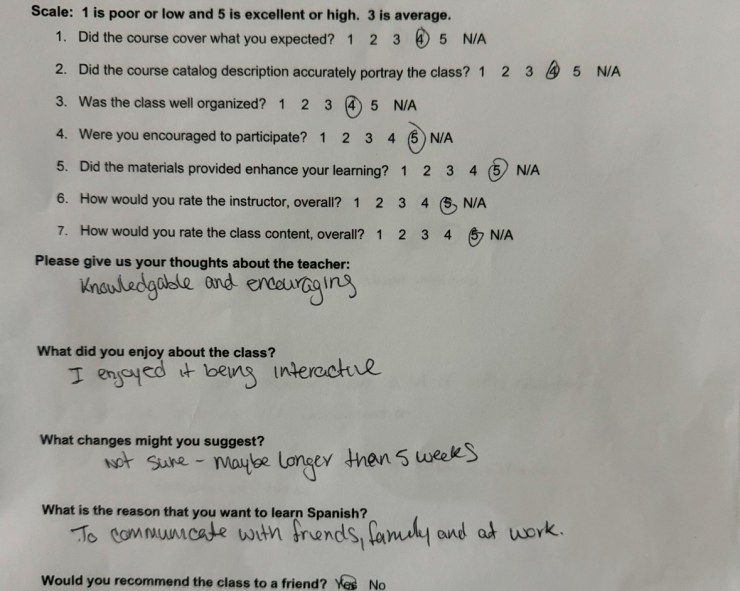 Scale: 1 is poor or low and 5 is excellent or high. 3 is average.
1. Did the course cover what you expected? 1 2 3 4 5 N/A
2. Did the course catalog description accurately portray the class? 1 2 3 4 5 N/A
3. Was the class well organized? 1 2 3 4 5 N/A
4. Were you encouraged to participate? 1 2 3 4 5 N/A
5. Did the materials provided enhance your learning? 1 2 3 4 5 N/A
6. How would you rate the instructor, overall? 1 2 3 4 5 N/A
7. How would you rate the class content, overall? 1 2 3 4 5 N/A
Please give us your thoughts about the teacher:
Knowledgable and encouraging
What did you enjoy about the class?
I enjoyed it being interactive
What changes might you suggest?
Not sure - maybe longer than 5 weeks
What is the reason that you want to learn Spanish?
To communicate with friends, family and at work.
Would you recommend the class to a friend? Yes No